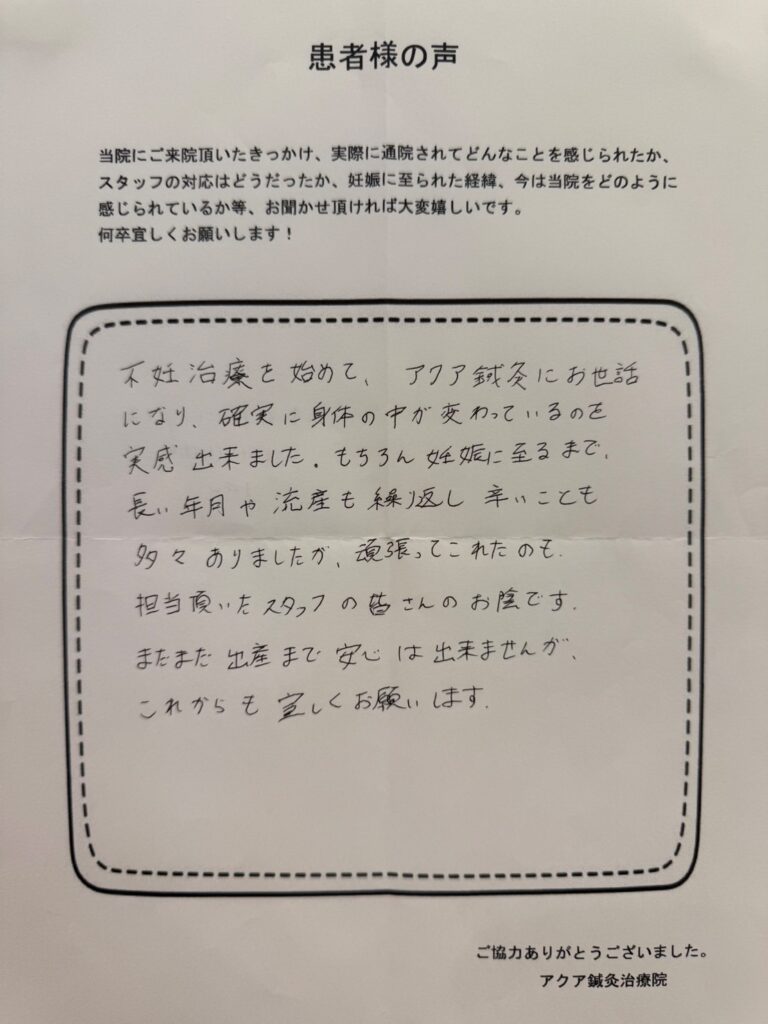 患者様の声
当院にご来院頂いたきっかけ、実際に通院されてどんなことを感じられたか、
スタッフの対応はどうだったか、妊娠に至られた経緯、今は当院をどのように
感じられているか等、お聞かせ頂ければ大変嬉しいです。
何卒宜しくお願いします！
不妊治療を始めて、アクア鍼灸にお世話
になり、確実に身体の中が変わっているのを
実感出来ました。もちろん妊娠に至るまで、
長い年月や流産も繰り返し辛いことも
多々ありましたが、頑張ってこれたのも、
担当頂いたスタッフの皆さんのお陰です。
まだまだ出産まで安心は出来ませんが、
これからも宜しくお願いします。
ご協力ありがとうございました。
アクア鍼灸治療院